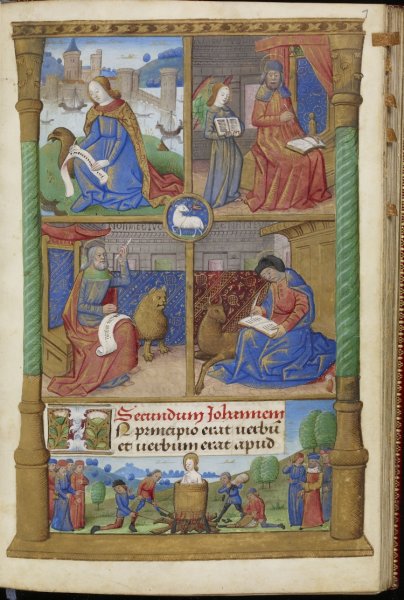 Secundum Johannem
IN principio erat verbu̅
et verbum erat apud